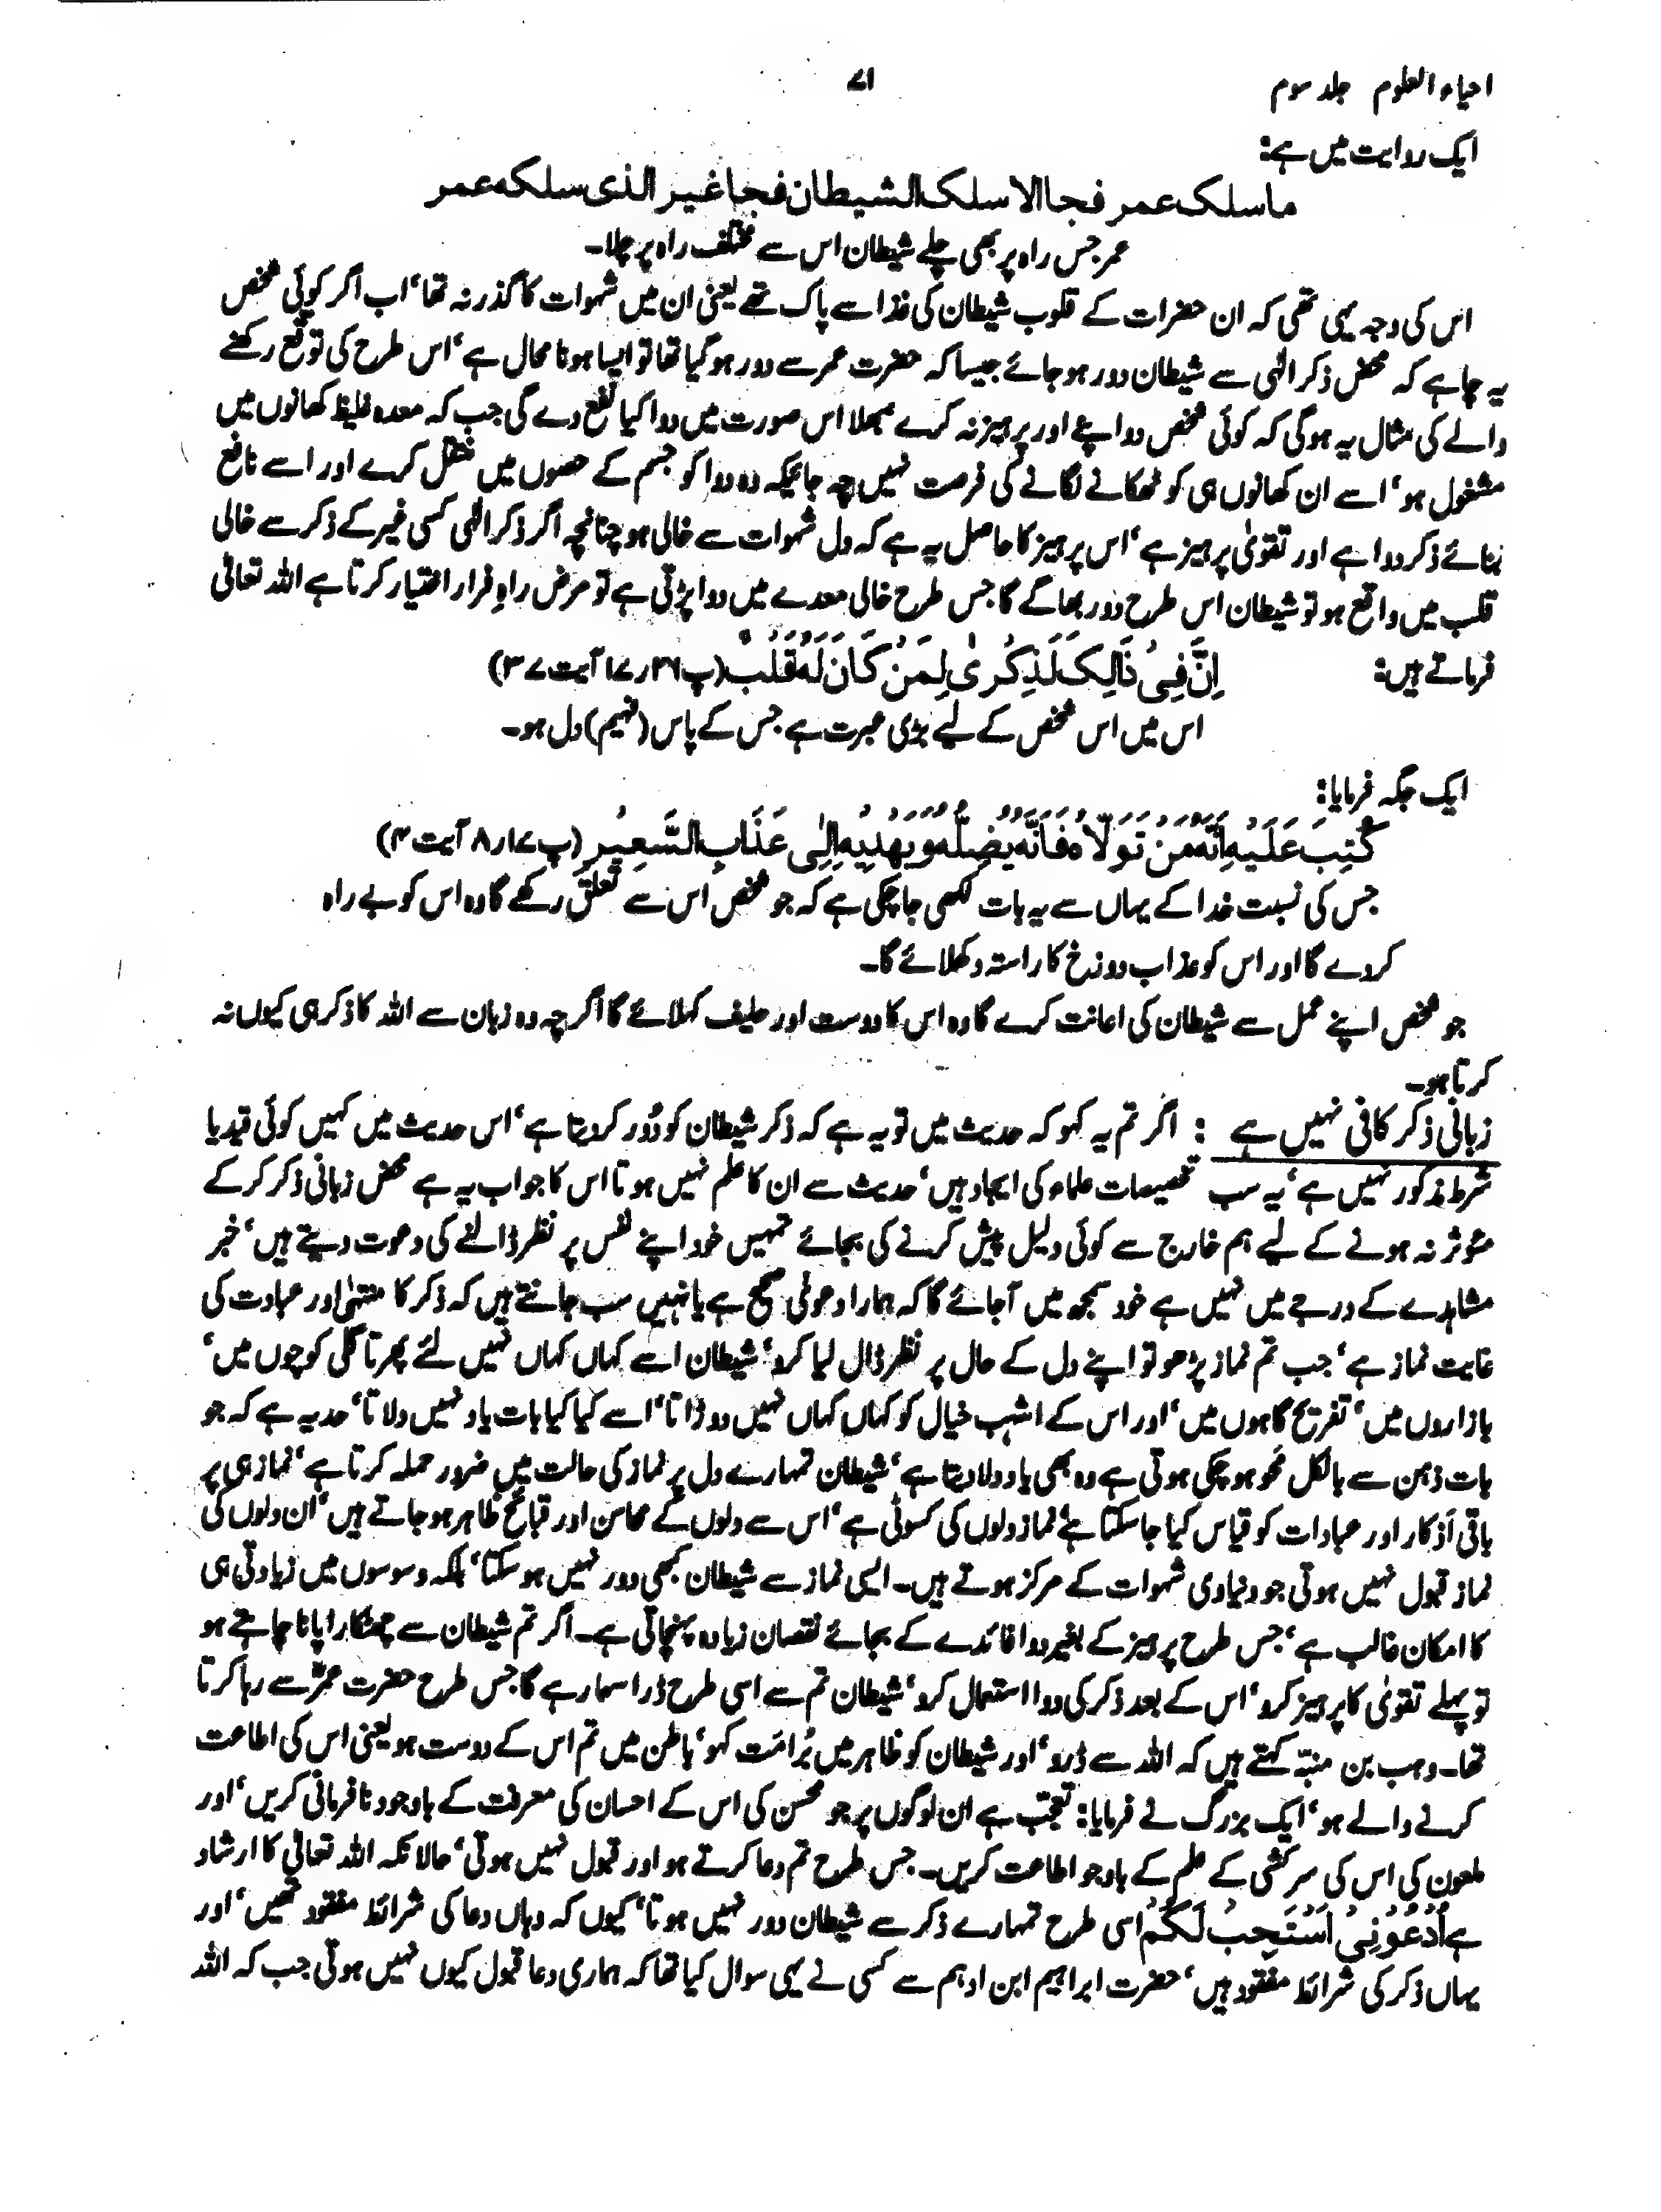 احیاء العلوم جلد سوم
۷۱
ایک روایت میں ہے:
ماسلک عمر فجا الا سلک الشیطان فجا غیر الذی سلکه عمر
عمر جس راہ پر بھی چلے شیطان اس سے مختلف راہ پر چلا۔
اس کی وجہ یہی تھی کہ ان حضرات کے قلوب شیطان کی غذا سے پاک تھے یعنی ان میں شہوات کا گذر نہ تھا، اب اگر کوئی شخص
یہ چاہے کہ محض ذکر الٰہی سے شیطان دور ہو جائے جیسا کہ حضرت عمر سے دور ہو گیا تھا تو ایسا ہونا محال ہے، اس طرح کی توقع رکھنے
والے کی مثال یہ ہوگی کہ کوئی شخص دوا پیئے اور پرہیز نہ کرے بھلا اس صورت میں دوا کیا نفع دے گی جب کہ معدہ غلیظ کھانوں میں
مشغول ہو، اسے ان کھانوں ہی کو ٹھکانے لگانے کی فرصت نہیں چہ جائیکہ وہ دوا کو جسم کے حصوں میں منتقل کرے اور اسے نافع
بنائے ذکر دوا ہے اور تقویٰ پرہیز ہے، اس پرہیز کا حاصل یہ ہے کہ دل شہوات سے خالی ہو چنانچہ اگر ذکر الٰہی کسی غیر کے ذکر سے خالی
قلب میں واقع ہو تو شیطان اس طرح دور بھاگے گا جس طرح خالی معدے میں دوا پڑتی ہے تو مرض راہِ فرار اختیار کرتا ہے اللہ تعالیٰ
فرماتے ہیں:
اِنَّ فِیْ ذَالِکَ لَذِکْرٰی لِمَنْ کَانَ لَهُ قَلْبٌ (پ ۲۶ ر ۱۷ آیت ۳۷)
اس میں اس شخص کے لیے بڑی عبرت ہے جس کے پاس (فہیم) دل ہو۔
ایک جگہ فرمایا:
کُتِبَ عَلَیْهِ اَنَّهُ مَنْ تَوَلَّاهُ فَاَنَّهُ یُضِلُّهُ وَیَهْدِیْهِ اِلٰی عَذَابِ السَّعِیْرِ (پ ۱۷ ر ۸ آیت ۴)
جس کی نسبت خدا کے یہاں سے یہ بات لکھی جا چکی ہے کہ جو شخص اس سے تعلق رکھے گا وہ اس کو بے راہ
کردے گا اور اس کو عذاب دوزخ کا راستہ دکھلائے گا۔
جو شخص اپنے عمل سے شیطان کی اعانت کرے گا وہ اس کا دوست اور حلیف کہلائے گا اگرچہ وہ زبان سے اللہ کا ذکر ہی کیوں نہ
کرتا ہو۔
زبانی ذکر کافی نہیں ہے : اگر تم یہ کہو کہ حدیث میں تو یہ ہے کہ ذکر شیطان کو دُور کردیتا ہے، اس حدیث میں کہیں کوئی قید یا
شرط مذکور نہیں ہے، یہ سب تخصیصات علماء کی ایجاد ہیں، حدیث سے ان کا علم نہیں ہوتا اس کا جواب یہ ہے محض زبانی ذکر کرکے
مئوثر نہ ہونے کے لیے ہم خارج سے کوئی دلیل پیش کرنے کی بجائے تمہیں خود اپنے نفس پر نظر ڈالنے کی دعوت دیتے ہیں، خبر
مشاہدے کے درجے میں نہیں ہے خود سمجھ میں آجائے گا کہ ہمارا دعویٰ صحیح ہے یا نہیں سب جانتے ہیں کہ ذکر کا منتہیٰ اور عبادت کی
غایت نماز ہے، جب تم نماز پڑھو تو اپنے دل کے حال پر نظر ڈال لیا کرو، شیطان اسے کہاں کہاں نہیں لئے پھرتا گلی کوچوں میں،
بازاروں میں، تفریح گاہوں میں، اور اس کے اشہب خیال کو کہاں کہاں نہیں دوڑاتا، اسے کیا کیا بات یاد نہیں دلاتا، حد یہ ہے کہ جو
بات ذہن سے بالکل محو ہو چکی ہوتی ہے وہ بھی یاد دلا دیتا ہے، شیطان تمہارے دل پر نماز کی حالت میں ضرور حملہ کرتا ہے، نماز ہی پر
باقی اَذکار اور عبادات کو قیاس کیا جا سکتا ہے، نماز دلوں کی کسوٹی ہے، اس سے دلوں کے محاسن اور قبائح ظاہر ہو جاتے ہیں، ان دلوں کی
نماز قبول نہیں ہوتی جو دنیاوی شہوات کے مرکز ہوتے ہیں۔ ایسی نماز سے شیطان کبھی دور نہیں ہو سکتا، بلکہ وسوسوں میں زیادتی ہی
کا امکان غالب ہے، جس طرح پرہیز کے بغیر دوا فائدے کے بجائے نقصان زیادہ پہنچاتی ہے۔ اگر تم شیطان سے چھٹکارا پانا چاہتے ہو
تو پہلے تقویٰ کا پرہیز کرو، اس کے بعد ذکر کی دوا استعمال کرو، شیطان تم سے اسی طرح ڈرا سہما رہے گا جس طرح حضرت عمرؓ سے رہا کرتا
تھا۔ وہب بن منبہّ کہتے ہیں کہ اللہ سے ڈرو، اور شیطان کو ظاہر میں بُرا مَت کہو، باطن میں تم اس کے دوست ہو یعنی اس کی اطاعت
کرنے والے ہو، ایک بزرگ نے فرمایا: تعجّب ہے ان لوگوں پر جو محسن کی اس کے احسان کی معرفت کے باوجود نافرمانی کریں، اور
ملعون کی اس کی سرکشی کے علم کے باوجو اطاعت کریں۔ جس طرح تم دعا کرتے ہو اور قبول نہیں ہوتی، حالانکہ اللہ تعالیٰ کا ارشاد
ہے اُدْعُوْنِیْ اَسْتَجِبْ لَکُمْ اسی طرح تمہارے ذکر سے شیطان دور نہیں ہوتا، کیوں کہ وہاں دعا کی شرائط مفقود تھیں، اور
یہاں ذکر کی شرائط مفقود ہیں، حضرت ابراہیم ابن ادہم سے کسی نے یہی سوال کیا تھا کہ ہماری دعا قبول کیوں نہیں ہوتی جب کہ اللہ